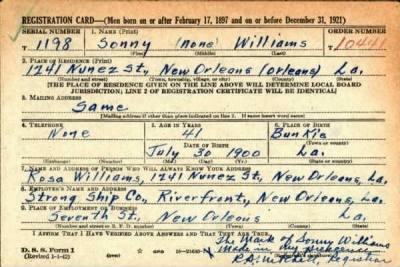 REGISTRATION CARD—(Men born on or after February 17, 1897 and on or before December 31, 1921)
SERIAL NUMBER 1. NAME (Print) ORDER NUMBER
T 1198 Sonny (None) Williams T10441
(First) (Middle) (Last)
2. PLACE OF RESIDENCE (Print)
1241 Nunez St., New Orleans (Orleans) La.
(Number and street) (Town, township, village, or city) (County) (State)
[THE PLACE OF RESIDENCE GIVEN ON THE LINE ABOVE WILL DETERMINE LOCAL BOARD
JURISDICTION; LINE 2 OF REGISTRATION CERTIFICATE WILL BE IDENTICAL]
3. MAILING ADDRESS
Same
[Mailing address if other than place indicated on line 2. If same insert word same]
4. TELEPHONE 5. AGE IN YEARS 6. PLACE OF BIRTH
None 41 Bunkie
DATE OF BIRTH (Town or county)
July 30 1900 La.
(Exchange) (Number) (Mo.) (Day) (Yr.) (State or country)
7. NAME AND ADDRESS OF PERSON WHO WILL ALWAYS KNOW YOUR ADDRESS
Rosa Williams, 1241 Nunez St., New Orleans, La.
8. EMPLOYER'S NAME AND ADDRESS
Strong Ship Co., Riverfront, New Orleans, La.
9. PLACE OF EMPLOYMENT OR BUSINESS
Seventh St., New Orleans La.
(Number and street or R. F. D. number) (Town) (County) (State)
I AFFIRM THAT I HAVE VERIFIED ABOVE ANSWERS AND THAT THEY ARE TRUE.
The Mark of Sonny Williams
D. S. S. Form 1 X Made in my presence
(Revised 1-1-42) (over) R.A. Mitchell, Registrar